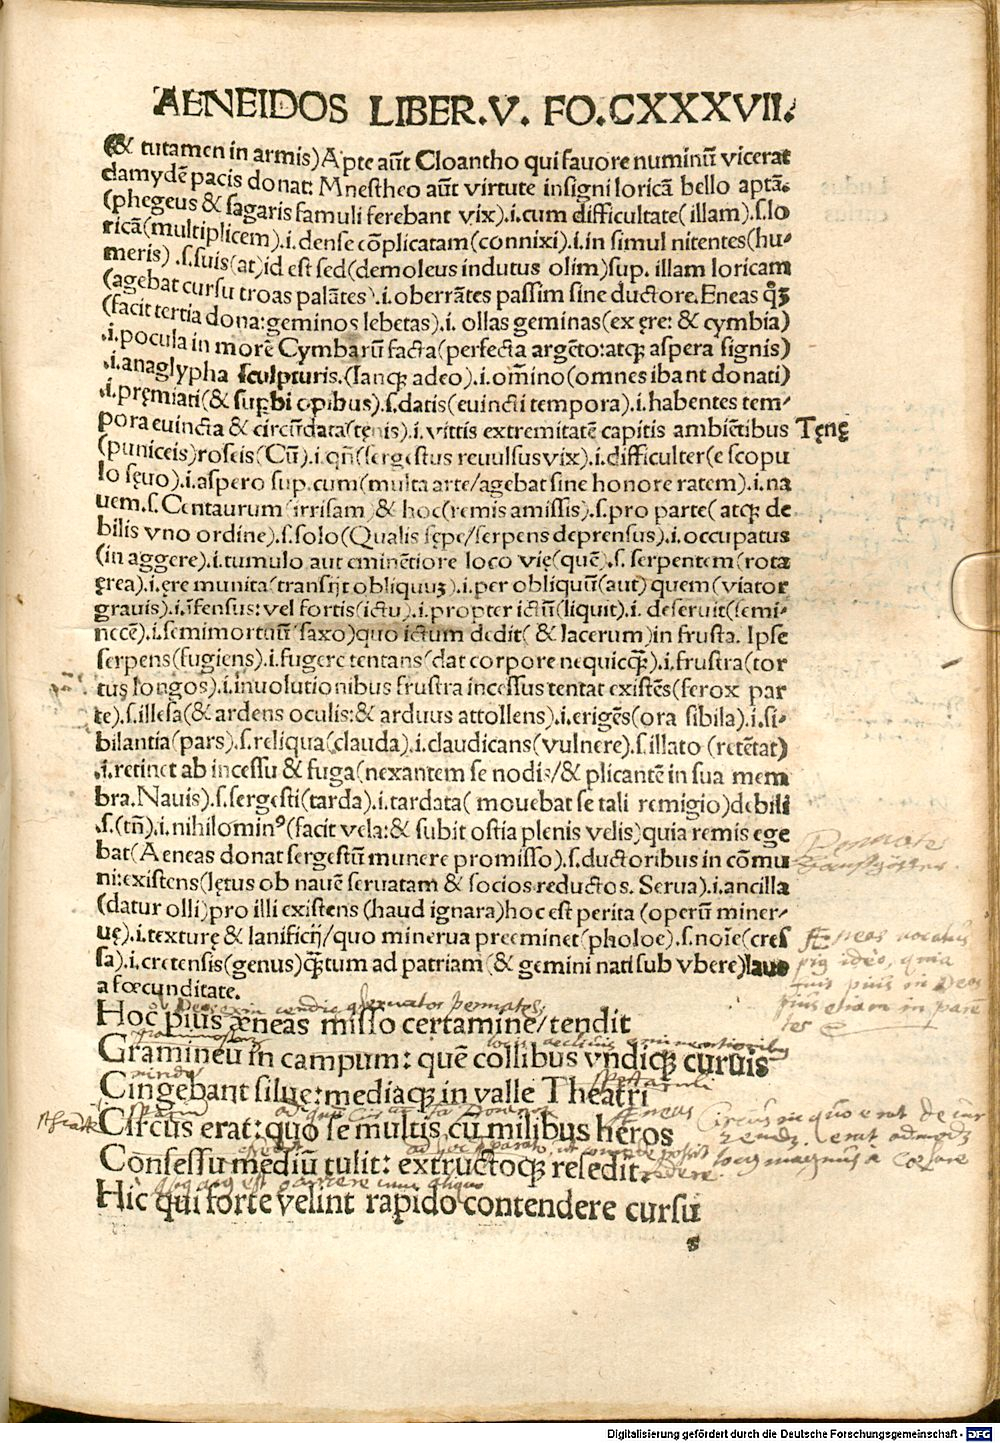 AENEIDOS LIBER.V. FO.CXXXVII.
(& tutamen in armis)Apte aūt Cloantho qui favore numinū vicerat
clamydē pacis donat: Mnestheo aūt virtute insigni loricā bello aptā.
(phegeus & sagaris famuli ferebant vix).i.cum difficultate(illam).s.lo
ricā(multiplicem).i.dense cōplicatam(connixi).i.in simul nitentes(hu⸗
meris) .s.suis(at)id est sed(demoleus indutus olim)sup. illam loricam
(agebat cursu troas palātes).i.oberrātes passim sine ductore.Eneas qꝫ
(facit tertia dona:geminos lebetas).i. ollas geminas(ex ęre: & cymbia)
.i.pocula in morē Cymbarū facta(perfecta argēto:atqꝫ aspera signis)
.i.anaglypha sculpturis.(Ianqꝫ adeo).i.oīno(omnes ibant donati)
.i.pręmiati(& supbi opibus).s.datis(euincti tempora).i.habentes tem⸗
pora euincta & circūdata(tęnis).i. vittis extremitatē capitis ambiētibus Tęnę
(puniceis)roseis(Cū).i.qn̄(sergestus reuulsus vix).i.difficulter(e scopu
lo sęuo).i.aspero sup.cum(multa arte/agebat sine honore ratem).i.na
uem.s.Centaurum(irrisam)& hoc(remis amissis).s.pro parte(atqꝫ de
bilis vno ordine).s.solo(Qualis sępe/serpens deprensus).i.occupatus
(in aggere).i.tumulo aut eminētiore loco vię(quē).s. serpentem(rota
ęrea).i.ęre munita(transijt obliquuꝫ).i.per obliquū(aut)quem(viator
grauis).i.īfensus:vel fortis(ictu).i.propter ictū(liquit).i. deseruit(semi⸗
necē).i.semimortuū(saxo)quo ictum dedit( & lacerum)in frusta. Ipse
serpens(fugiens).i.fugere tentans(dat corpore nequicqꝫ̄).i.frustra(tor
tus longos).i.inuolutionibus frustra incessus tentat existēs(ferox par
te).s.illesa(& ardens oculis:& arduus attollens).i.erigēs(ora sibila).i.si⸗
bilantia(pars).s.reliqua(clauda).i.claudicans(vulnere).s.illato (retētat)
.i.retinet ab incessu & fuga(nexantem se nodis/& plicantē in sua mem
bra.Nauis).s.sergesti(tarda).i.tardata( mouebat se tali remigio)debili
.s.(tn̄).i.nihilominꝰ(facit vela:& subit ostia plenis velis)quia remis ege
bat(Aeneas donat sergestū munere promisso).s.ductoribus in cōmu
ni:existens(lętus ob nauē seruatam & socios reductos. Serua).i.ancilla
(datur olli)pro illi existens (haud ignara)hoc est perita (operū miner⸗
uę).i.texturę & lanificij/quo minerua preeminet(pholoe).s.noīe(cres
sa).i.cretensis(genus)qꝫ̄tum ad patriam (& gemini nati sub vbere)laus
a fœcunditate.
Hoc pius æneas misso certamine/tendit
Gramineū in campum: quē collibus vndiqꝫ curuis
Cingebant silue:mediaqꝫ in valle Theatri
Circus erat:quo se multis cū milibus hėros
Consessu mediū tulit: extructoqꝫ resedit.
Hic qui forte velint rapido contendere cursu
s
Aeneas vocatus
pius ideo, quia
fuit pius in Deos
pius etiam in paren
tes
Aeneas
Circus in quo erat
locus magnus a
Digitalisierung gefördert durch die Deutsche Forschungsgemeinschaft - DFG